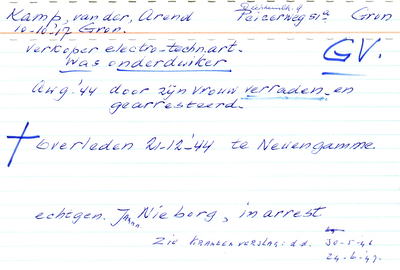 Kamp, van der, Arend Peizerweg 51a Gron
10-10-'17 Gron.
verkoper electro-techn.art.
Was onderduiker
GV.
Aug '44 door zijn vrouw verraden en
gearresteerd.
overleden 21-12-'44 te Neuengamme.
echtgen. Nieborg, in arrest
zie krantenverslag: d.d. 30-5-46
24-6-'47.